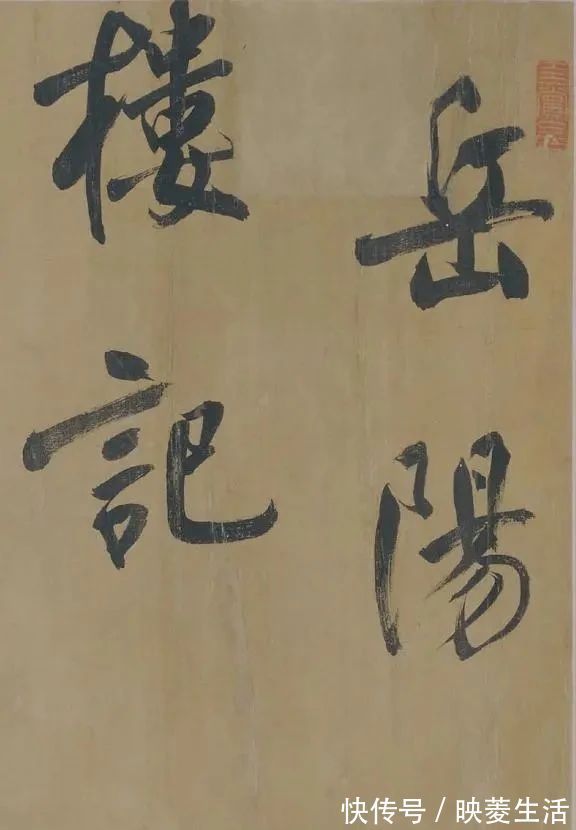 岳陽
樓記
快传号/映菱生活